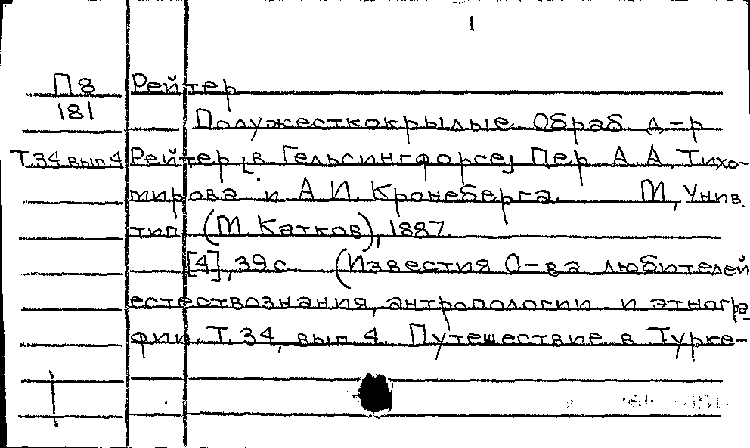 1
П8 Рейтер
181
Полужесткокрылые. Обраб. д-р
Т.34 вып 4 Рейтер [в Гельсингфорсе] Пер. А. А. Тихо-
мирова и А. И. Кронеберга. М, Унив.
тип. (М. Катков), 1887.
[4], 39 с. (Известия О-ва любителей
естествознания, антропологии и этногра-
фии. Т. 34, вып 4. Путешествие в Турке-